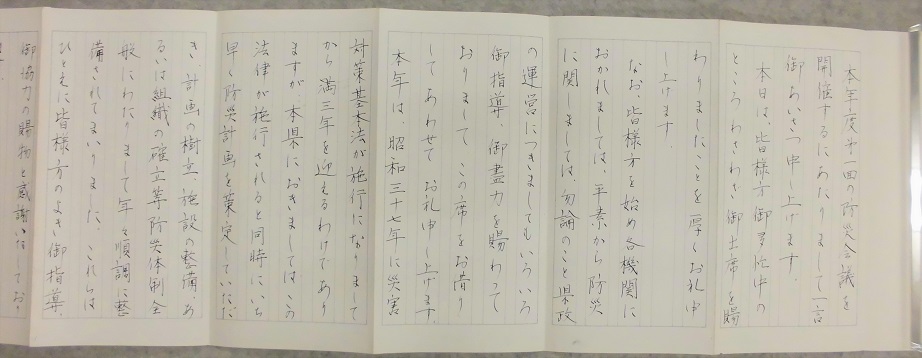 本年度第一回の防災会議を
開催するにあたりまして一言
御あいさつ申し上げます。
本日は、皆様方御多忙中の
ところわざわざ御出席を賜
わりましたことを厚くお礼申
し上げます。
なお、皆様方を始め各機関に
おかれましては、平素から防災
に関しましては、勿論のこと県政
の運営につきましてもいろいろ
御指導、御盡力を賜わって
おりまして、この席をお借り
してあわせてお礼申し上げます。
本年は、昭和三十七年に災害
対策基本法が施行になりまして
から満三年を迎えるわけであり
ますが、本県におきましてはこの
法律が施行されると同時にいち
早く防災計画を策定していただ
き、計画の樹立、施設の整備、あ
るいは組織の確立等防災体制全
般にわたりまして年々順調に整
備されてまいりました。これらは
ひとえに皆様方のよき御指導、
御協力の賜物と感謝いたしており